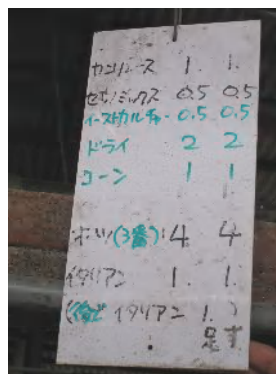 カンリュース 1. 1.
セサミミックス 0.5 0.5
イーストカルチャー 0.5 0.5
ドライ 2 2
コーン 1 1
(3番) 4 4
イタリアン 1. 1.
イタリアン 1. )
足す